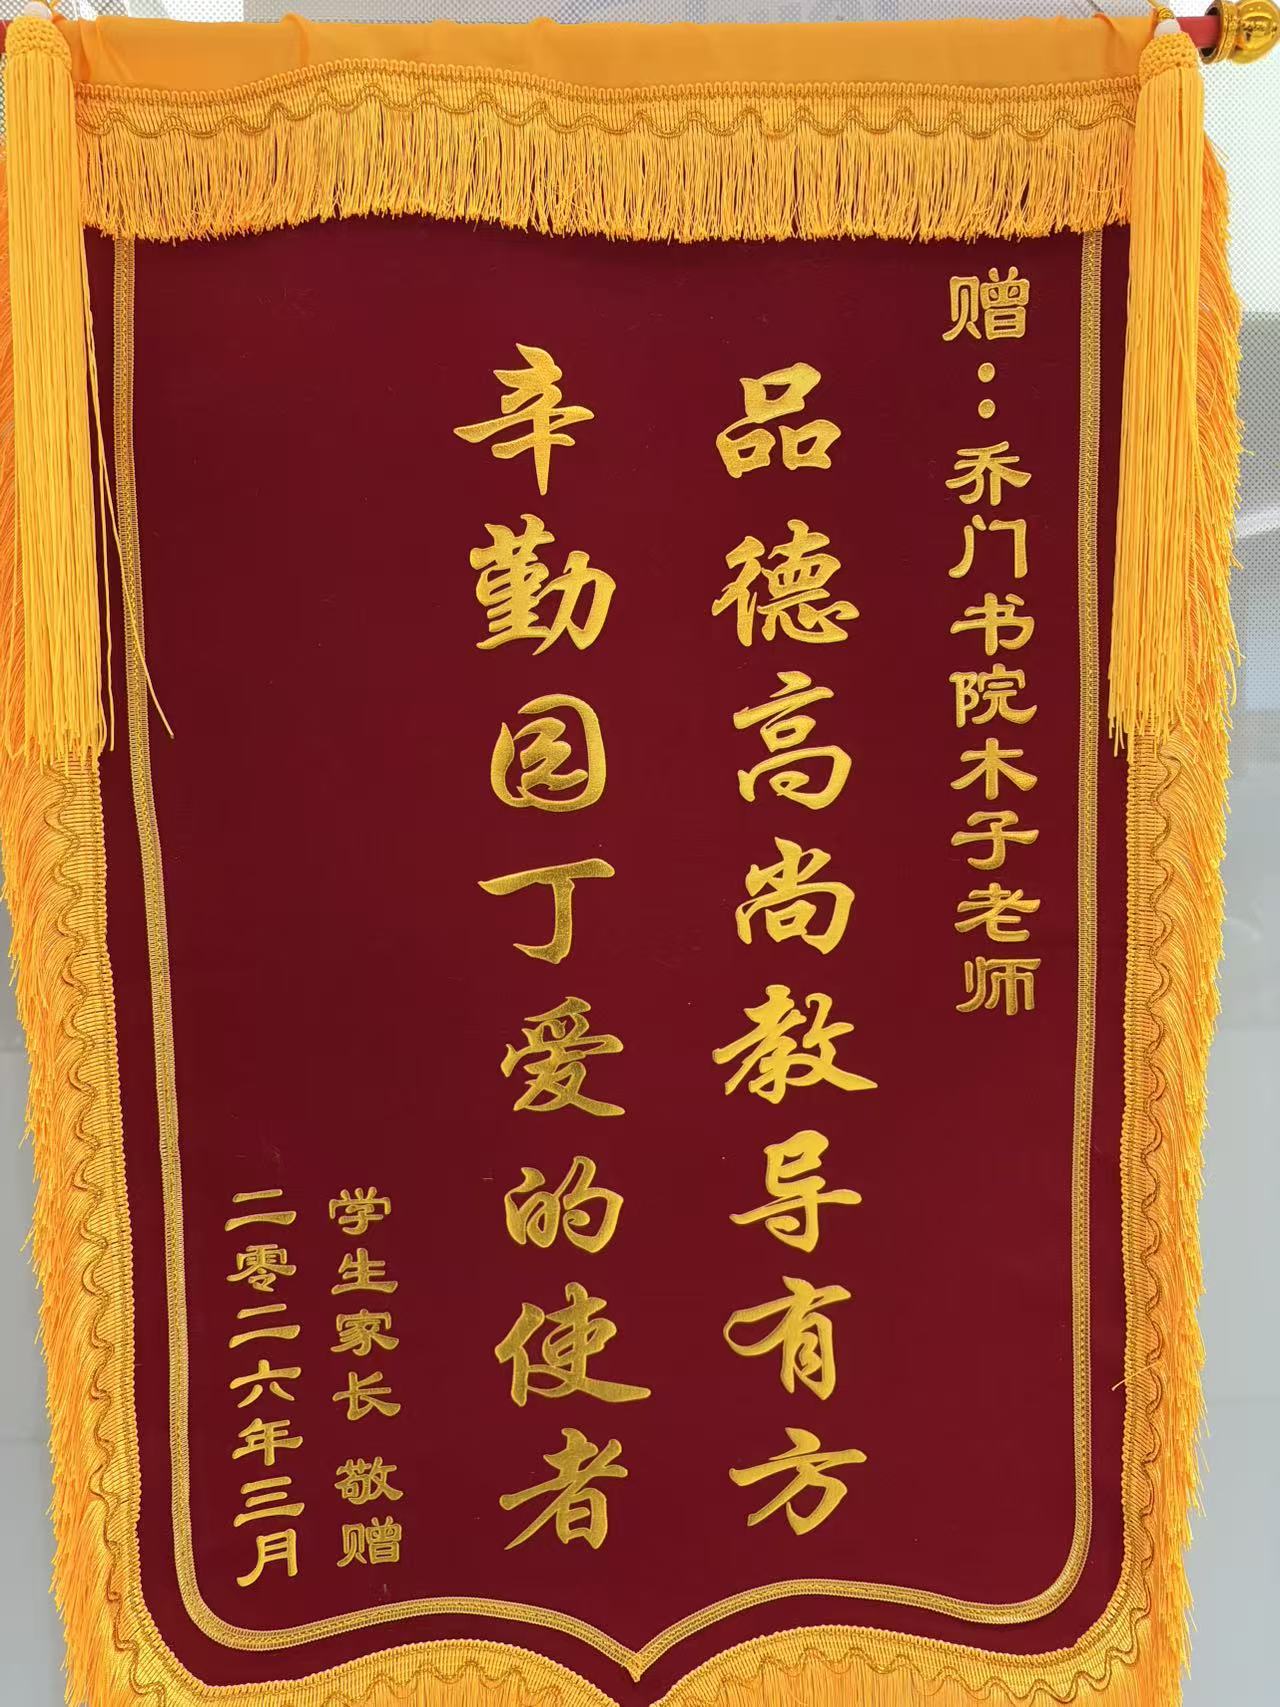 赠：乔门书院木子老师
品德高尚教导有方
辛勤园丁爱的使者
学生家长 敬赠
二零二六年三月